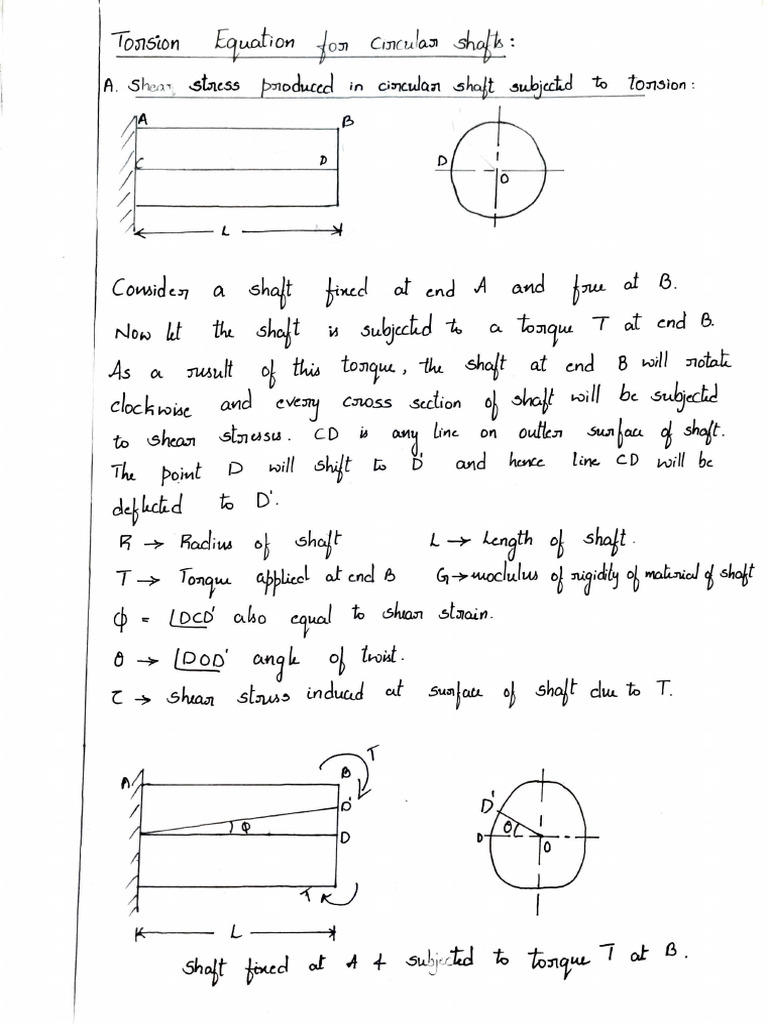 Torsion Equation for circular shafts:
A. Shear stress produced in circular shaft subjected to torsion:
A B
C D D O
L
Consider a shaft fixed at end A and free at B.
Now let the shaft is subjected to a torque T at end B.
As a result of this torque, the shaft at end B will rotate
clockwise and every cross section of shaft will be subjected
to shear stresses. CD is any line on outer surface of shaft.
The point D will shift to D' and hence line CD will be
deflected to D'.
R → Radius of shaft L → Length of shaft.
T → Torque applied at end B G → modulus of rigidity of material of shaft
ϕ = ∠DCD' also equal to shear strain.
θ → ∠DOD' angle of twist.
τ → shear stress induced at surface of shaft due to T.
T
A B
D' D'
ϕ D D θ O
T
L
Shaft fixed at A & subjected to torque T at B.